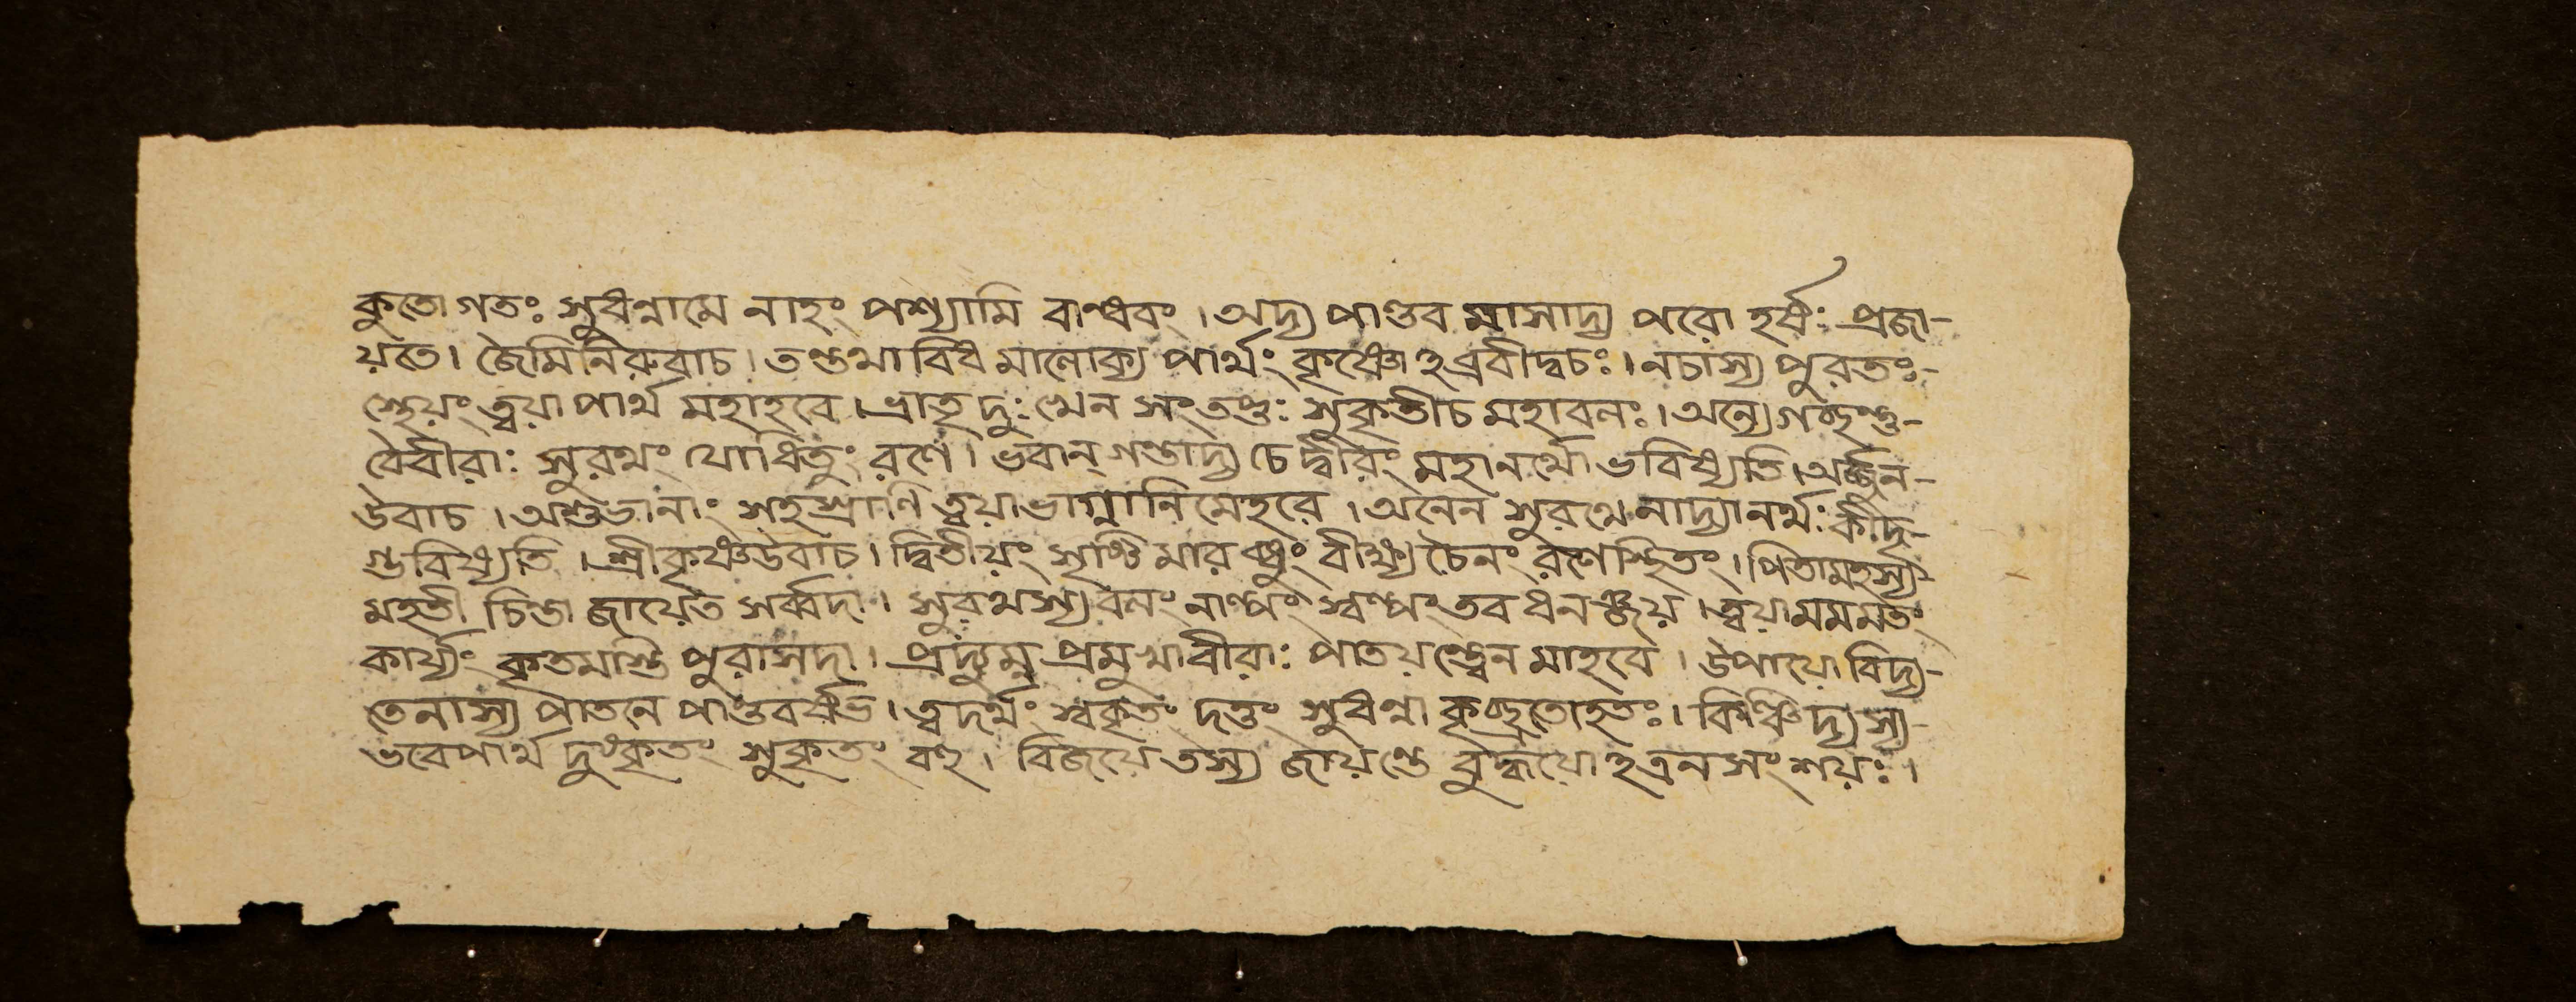 কুতো গতঃ সুধন্বা মে নাহং পশ্যামি বান্ধবং । অদ্য পাণ্ডব মাসাদ্য পরো হর্ষঃ প্রজা-
য়তে । জৈমিনিরুবাচ । তন্তথাবিধ মালোক্য পার্থং কৃষ্ণো ঽব্রবীদ্বচঃ । নচাস্য পুরতঃ-
স্থেয়ং ত্বয়া পার্থ মহাহবে । ভ্রাতৃ দুঃখেন সংতপ্তঃ সুকৃতীচ মহাবলঃ । অন্যে গচ্ছন্তু-
বৈ বীরাঃ সুরথং যোধিতুং রণে । ভবান্ গন্তাদ্য চেদ্বৈরিং মহানর্থো ভবিষ্যতি । অর্জ্জুন-
উবাচ । অশুভানাং সহস্রাণি ত্বয়া ভগ্নানি মেহরে । অনেন সুরথে নাদ্যানর্থঃ কীদৃ-
গ্ভবিষ্যতি । শ্রীকৃষ্ণউবাচ । দ্বিতীয়ং সৃষ্টি মারব্ধুং বীক্ষ্য চৈনং রণে স্থিতং । পিতামহস্য-
মহতী চিন্তা জায়েত সর্ব্বদা । সুরথস্য বলং নাল্পং স্বল্পং তব ধনঞ্জয় । ত্বয়া মম মতং
কার্য্যং কৃতমস্তি পুরাসদা । প্রদ্যুম্ন প্রমুখাবীরাঃ পাতয়ন্ত্বেন মাহবে । উপায়ো বিদ্য-
তেনাস্য পাতনে পাণ্ডবর্ষভ । ত্বদর্থং স্বকৃতং দত্তং সুধন্বা কৃচ্ছ্রতোহতঃ । কিঞ্চিদ্যস্য-
ভবেপার্থ দুষ্কৃতং সুকৃতং বহু । বিজয়ে তস্য জায়ন্তে বুদ্ধয়ো ঽত্রন সংশয়ঃ ।